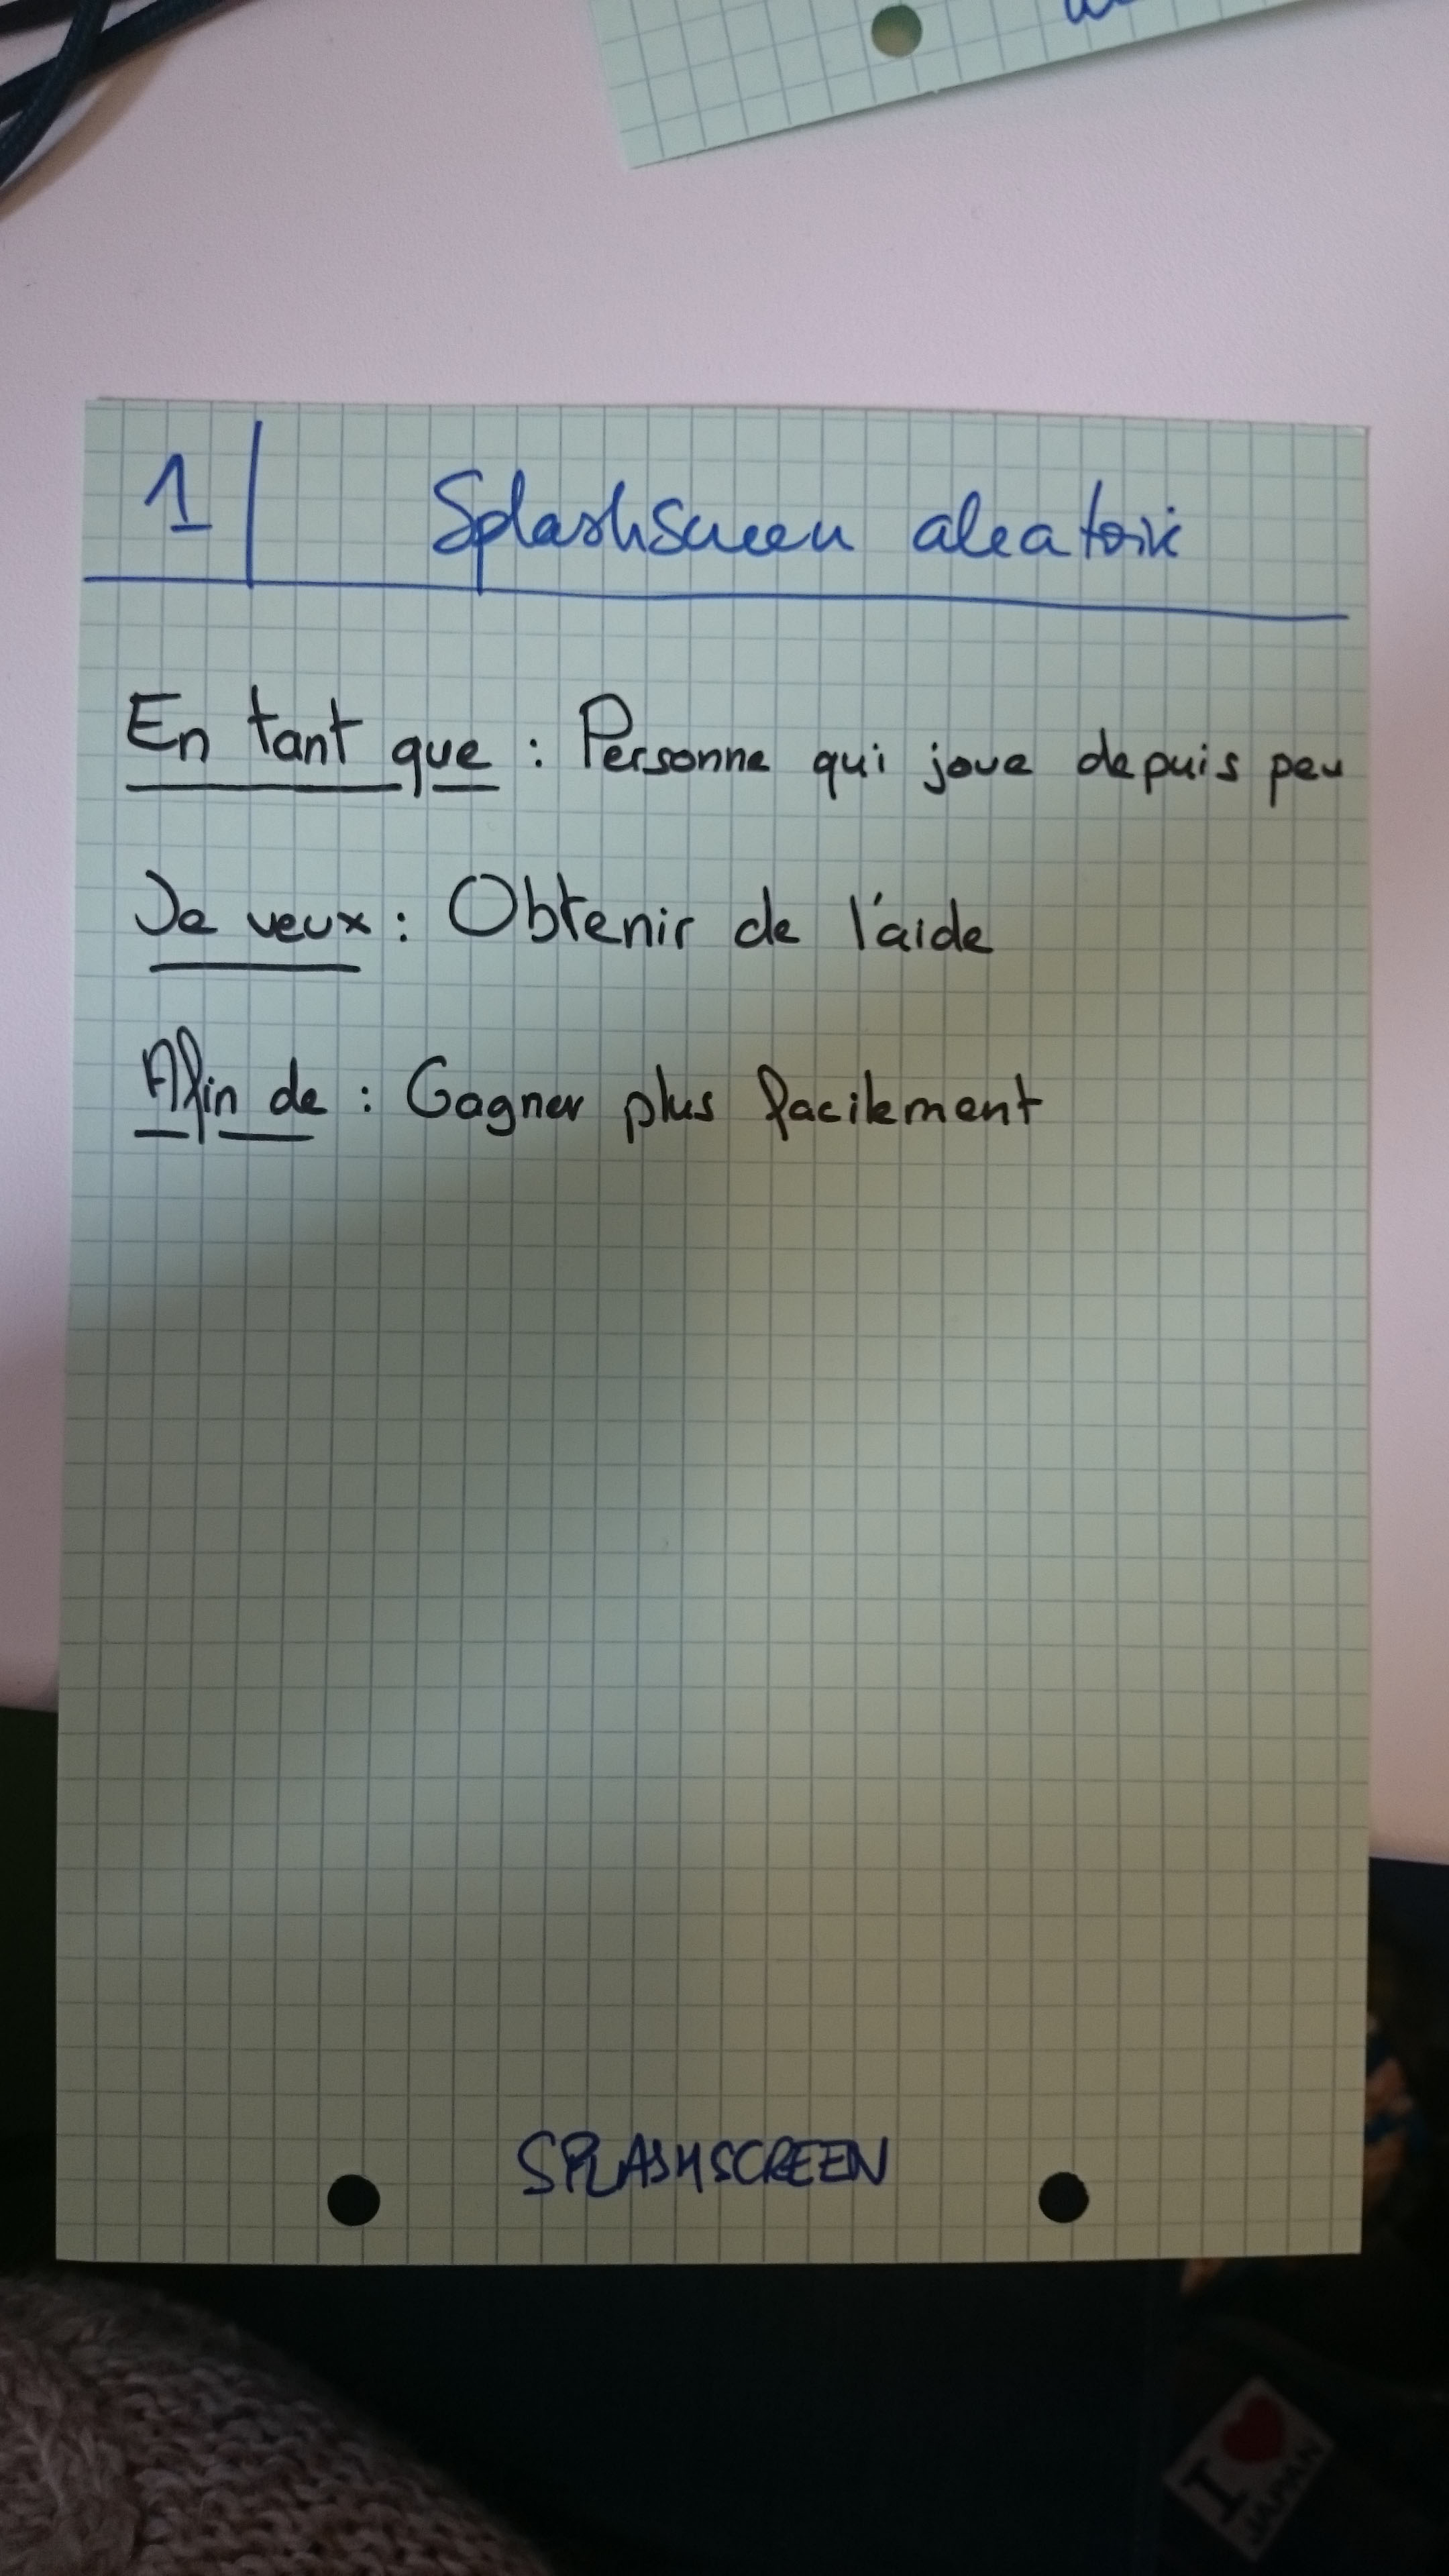 1 SplashScreen aleatoire
En tant que : Personne qui joue depuis peu
Je veux : Obtenir de l'aide
Afin de : Gagner plus facilement
SPLASHSCREEN
I ❤ JAPAN